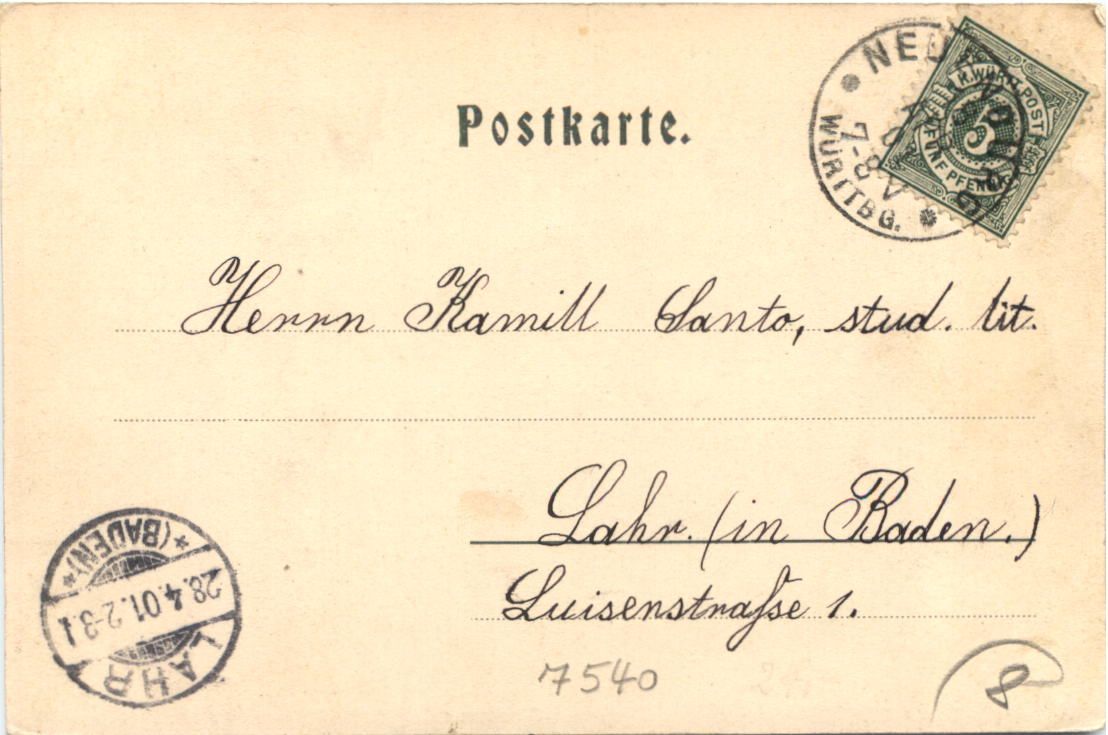 Postkarte.
K. WÜRTT. POST
5
FÜNF PFENNIG
7-8 V
WÜRTTBG.
Herrn Kamill Santo, stud. lit.
Lahr. (in Baden.)
Luisenstraſse 1.
*(BADEN)*
28.4.01.2-3.N
LAHR
7540
8